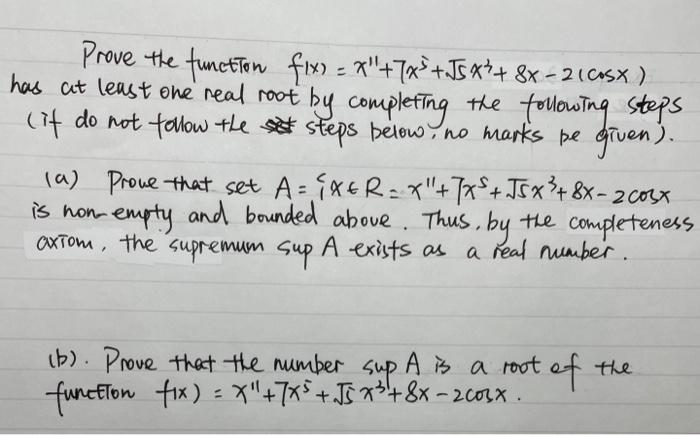 Prove the function f(x) = x¹¹+7x⁵+√5x³+8x-2(cosx)
has at least one real root by completing the following steps
(if do not follow the steps below, no marks be given).
(a) Prove that set A = {x∈R = x¹¹+7x⁵+√5x³+8x-2cosx
is non-empty and bounded above. Thus, by the completeness
axiom, the supremum sup A exists as a real number.
(b). Prove that the number sup A is a root of the
function f(x) = x¹¹+7x⁵+√5x³+8x-2cosx.